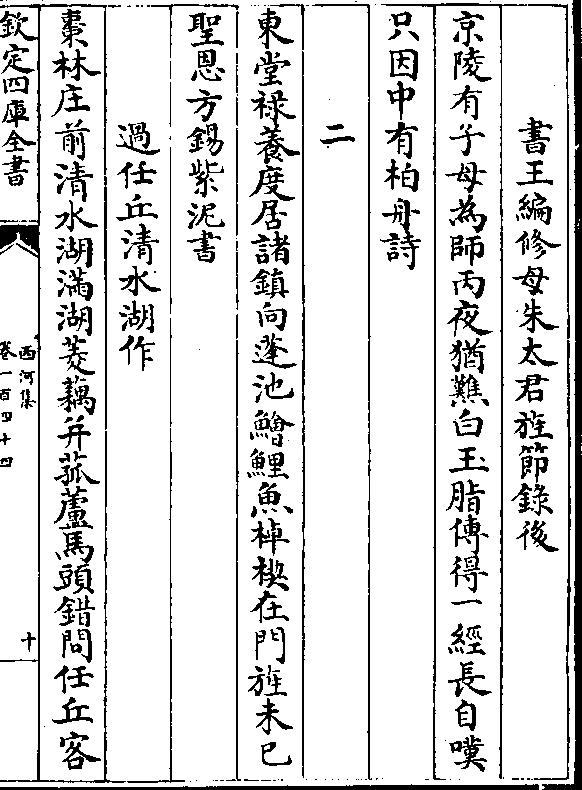 書王編修母朱太君旌節錄後
京陵有子母為師丙夜猶難白玉脂傳得一經長自嘆
只因中有柏舟詩
二
東堂祿養度居諸鎮向蓬池鱠鯉魚棹楔在門旌未已
聖恩方錫紫泥書
過任丘清水湖作
棗林庄前清水湖滿湖菱藕并菰蘆馬頭錯問任丘客
欽定四庫全書
西河集
卷一百四十四
十